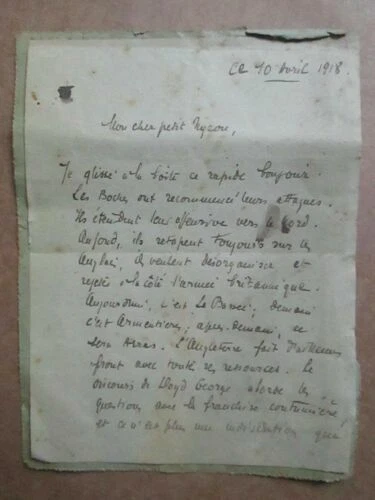 Ce 10 Avril 1918.
Mon cher petit
Je glisse à la boîte ce rapide bonjour.
Les Boches ont recommencé leurs attaques.
Ils étendent leur offensive vers le Nord.
Au fond, ils retapent toujours sur les
Anglais, ils veulent désorganiser et
rejeter à la côté l'armée britannique.
Aujourd'hui, c'est La Bassée ; demain
c'est Armentières ; après-demain, ce
sera Arras. L'Angleterre fait d'ailleurs
front avec toutes ses ressources. Le
discours de Lloyd George aborde les
questions avec la franchise coutumière,
et ce n'est plus une indiscrétion que